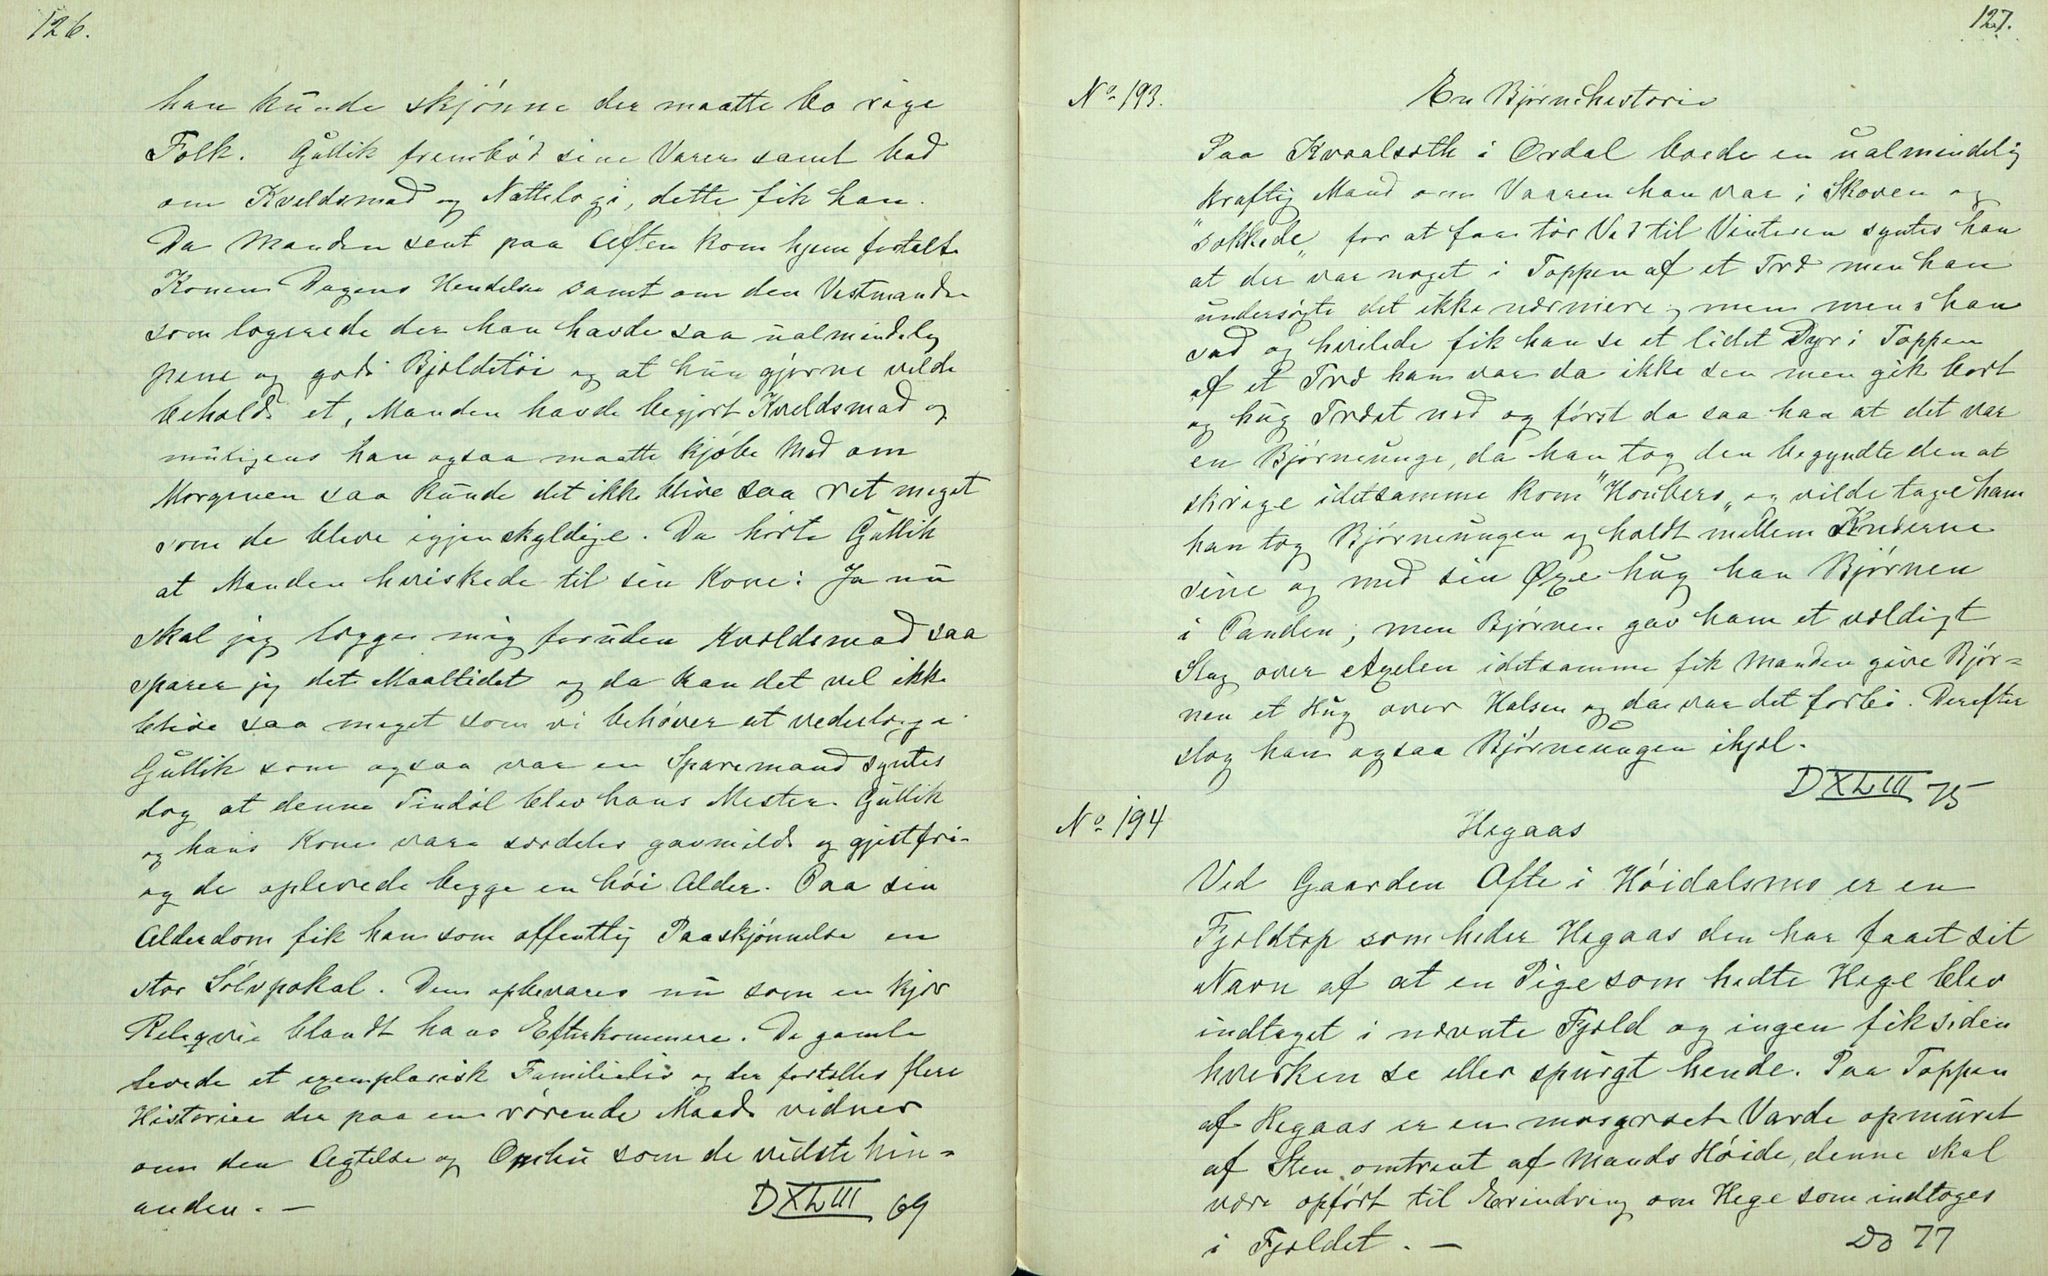 126.
han kunde skjønne der maatte bo rige
Folk. Gullik frembød sine Varer samt bad
om Kveldsmad og Nattelogi, dette fik han.
Da Manden sent paa Aften kom hjem fortalte
Konen Dagens Hendelse samt om den Vestmanden
som logerede der han havde saa ualmindelig
pene og gode Bjeldetøi og at hun gjerne vilde
beholde et, Manden havde begjert Kveldsmad og
muligens han ogsaa maatte kjøbe Mad om
Morgenen saa kunde det ikke blive saa ret meget
som de bleve igjen skyldige. Da hørte Gullik
at Manden hviskede til sin Kone: Ja nu
skal jeg lægge mig foruden Kvældsmad saa
sparer jeg det Maaltidet og da kan det vel ikke
blive saa meget som vi behøver at vederlægge.
Gullik som ogsaa var en Sparemand syntes
dog at denne Tindøl blev hans Mester. Gullik
og hans Kone vare særdeles gavmilde og gjestfri-
og de oplevede begge en høi Alder. Paa sin
Alderdom fik han som offentlig Paaskjønnelse en
stor Sølvpokal. Den opbevares nu som en kjær
Reliqvie blandt hans Efterkommere. De gamle
levede et exemplarisk Familieliv og der fortælles flere
Historier der paa en rørende Maade vidner
om den Agtelse og Omhu som de vidste hin-
anden. —
D XLIII 69
127.
No 193.
En Bjørnehistorie
Paa Kvaalseth i Ordal boede en ualmindelig
kraftig Mand om Vaaren han var i Skoven og
"søkkede" for at faa tør Ved til Vinteren syntes han
at der var noget i Toppen af et Træ men han
undersøgte det ikke nærmere, men mens han
sad og hvilede fik han se et lidet Dyr i Toppen
af et Træ han var da ikke sen men gik bort
og hug Træet ned og først da saa han at det var
en Bjørneunge, da han tog den begyndte den at
skrige idetsamme kom "Honbers" og vilde tage ham
han tog Bjørneungen og holdt mellem Knæerne
sine og med sin Øxe hug han Bjørnen
i Panden, men Bjørnen gav ham et vældigt
Slag over Axelen idetsamme fik Manden give Bjør-
nen et Hug over Halsen og da var det forbi. Derefter
slog han ogsaa Bjørneungen ihjel.
D XLIII 75
No 194
Hegaas
Ved Gaarden Ofte i Høidalsmo er en
Fjeldtop som heder Hegaas den har faaet sit
Navn af at en Pige som hedte Hege blev
indtaget i nævnte Fjeld og ingen fik siden
hverken se eller spurgt hende. Paa Toppen
af Hegaas er en mosgroet Varde opmuret
af Sten omtrent af Mands Høide, denne skal
være opført til Erindring om Hege som indtoges
i Fjeldet. —
Do 77